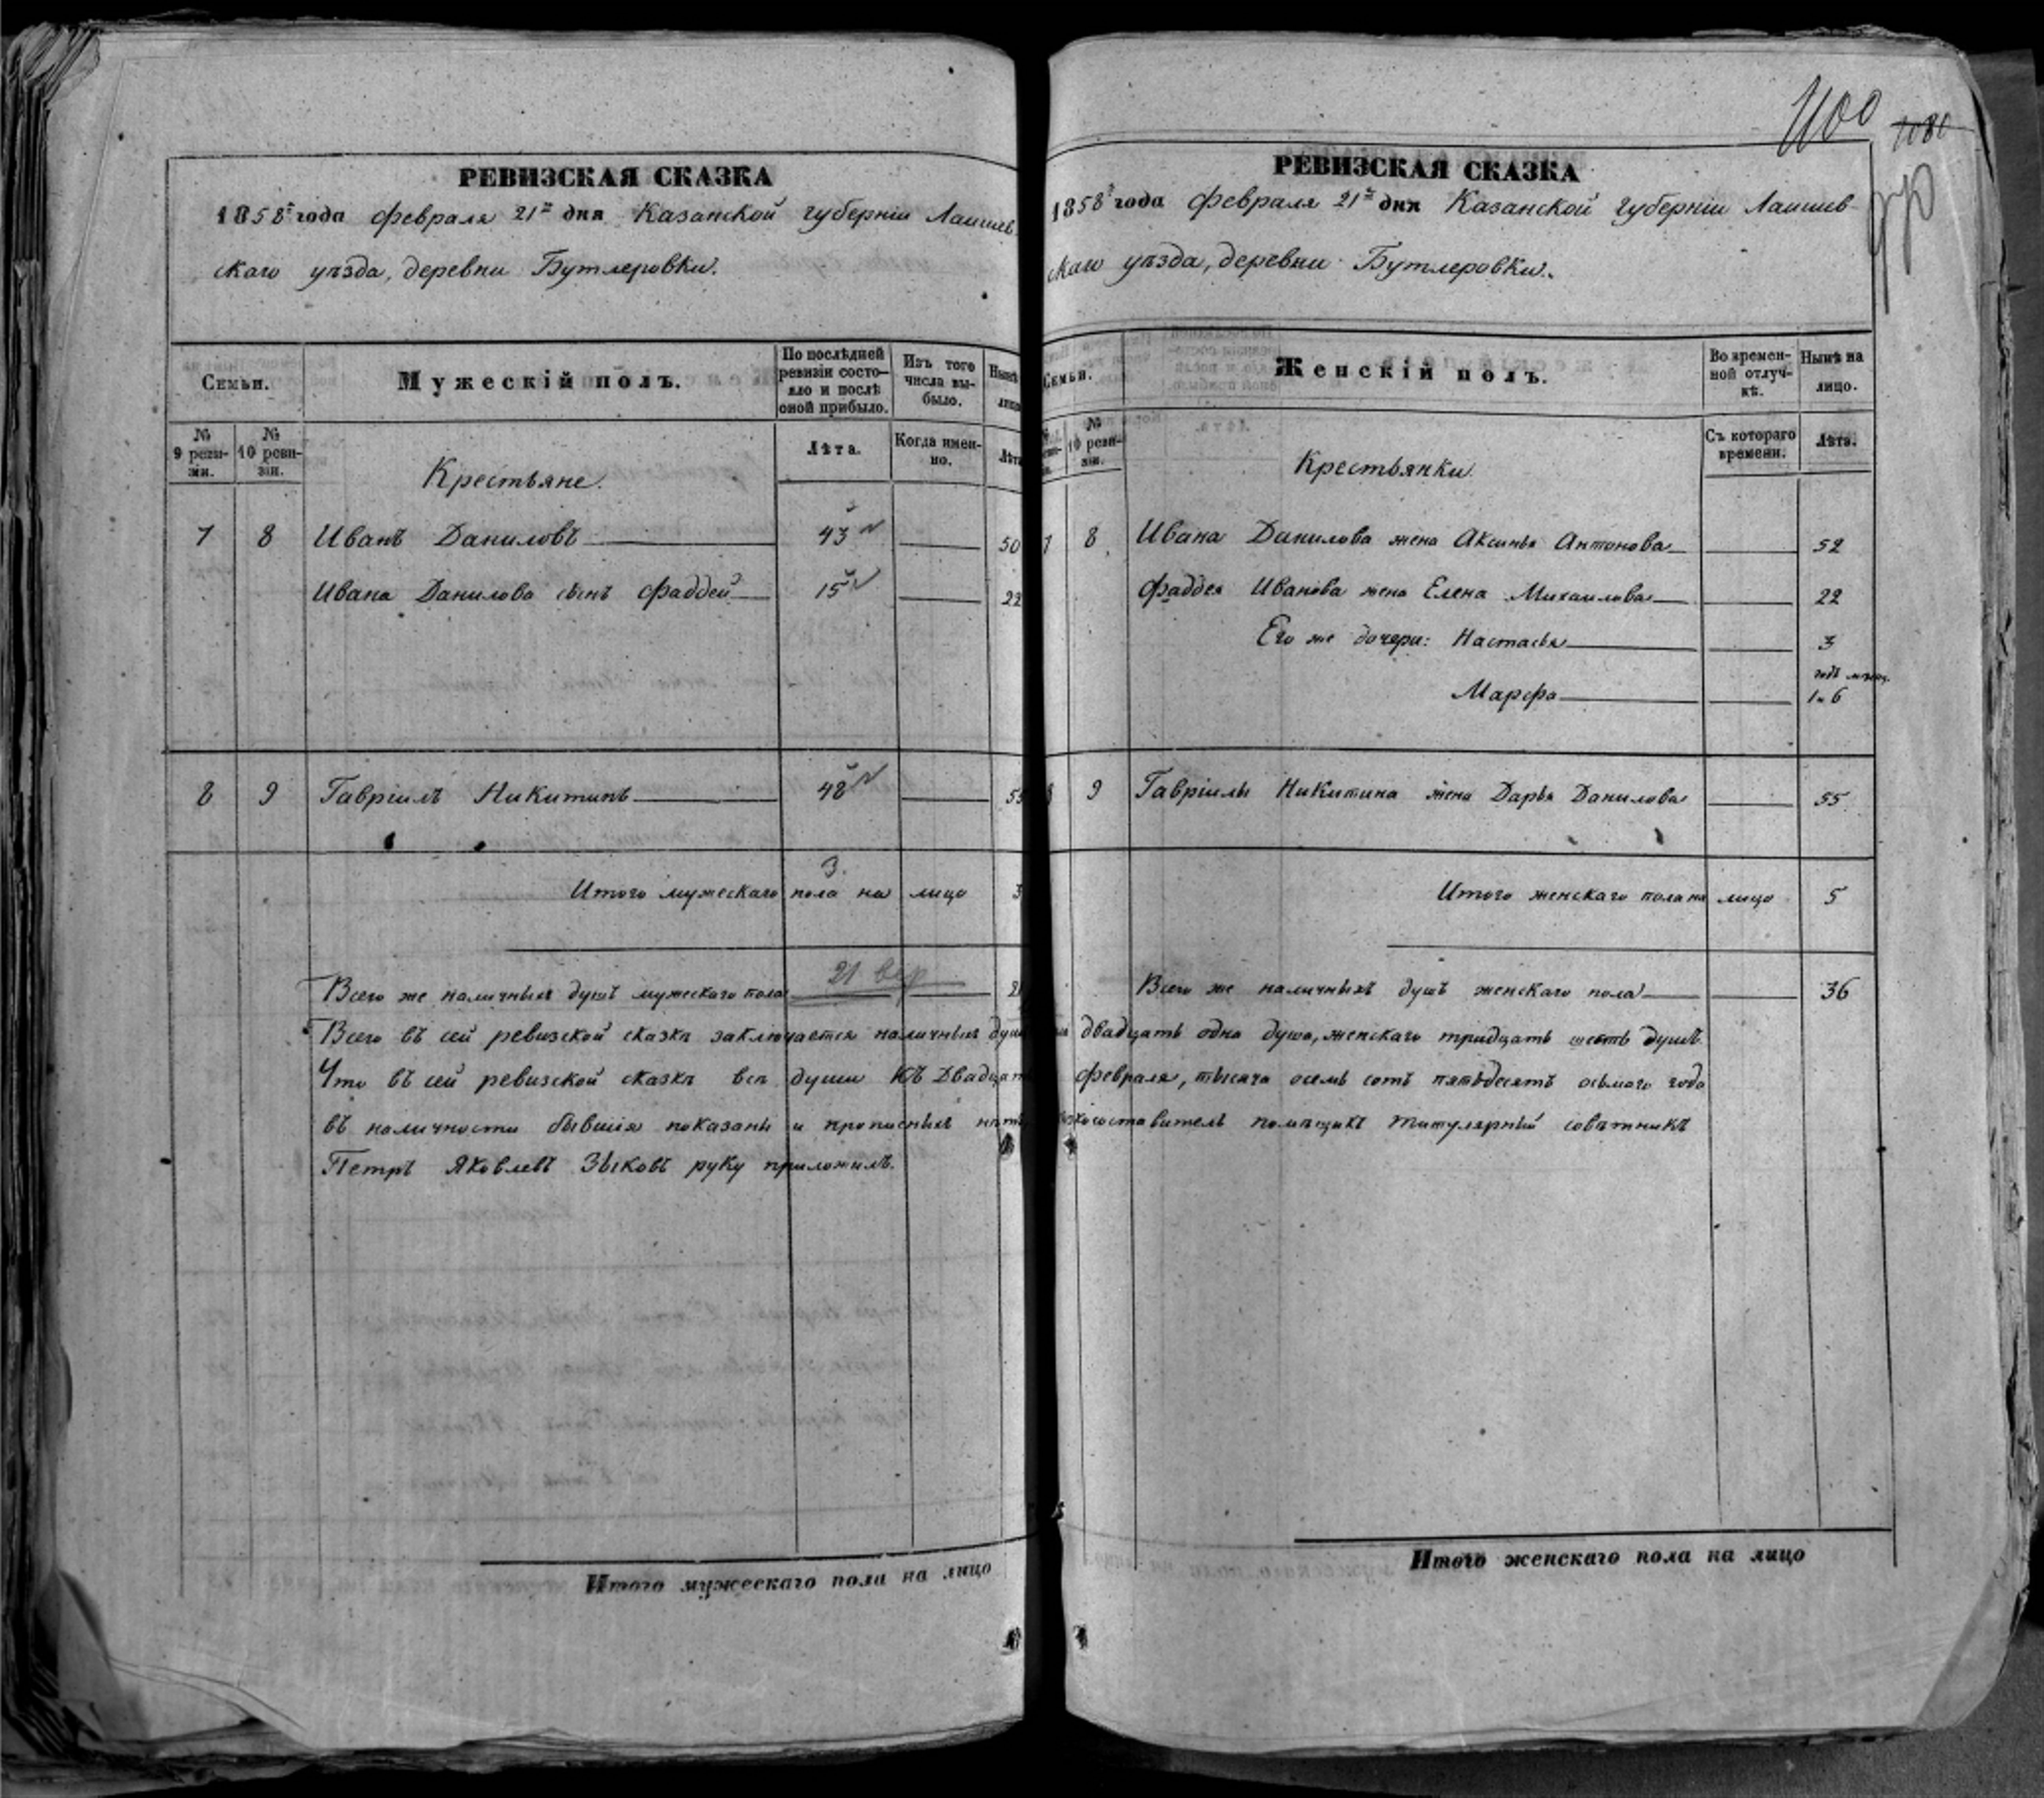 РЕВИЗСКАЯ СКАЗКА
1858 года февраля 21 дня Казанской губерніи Лаишев
скаго уѣзда, деревни Бутлеровки.
Семьи.
Мужескій полъ.
По послѣдней ревизіи состо-
яло и послѣ
оной прибыло.
Изъ того
числа вы-
было.
Нынѣ
лицо
№
9 реви-
зіи.
№
10 реви-
зіи.
Крестьяне.
Лѣта.
Когда имен-
но.
Лѣта
7 8 Иванъ Даниловъ 43 50
Ивана Данилова сынъ Фаддей 15 22
8 9 Гавріилъ Никитинъ 48 55
3.
Итого мужескаго пола на лицо 3
21
Всего же наличныхъ душъ мужескаго пола 21
Всего въ сей ревизской сказкѣ заключается наличныхъ душъ
Что въ сей ревизской сказкѣ всѣ души къ двадцать
въ наличности бывшія показаны и прописныхъ нѣтъ
Петръ Яковлевъ Зыковъ руку приложилъ.
Итого мужескаго пола на лицо
1100
1080
РЕВИЗСКАЯ СКАЗКА
1858 года февраля 21 дня Казанской губерніи Лаишев-
скаго уѣзда, деревни Бутлеровки.
Семьи.
Женскій полъ.
Во времен-
ной отлуч-
кѣ.
Нынѣ на
лицо.
№
10 реви-
зіи.
Крестьянки
Съ котораго
времени.
Лѣта.
7 8 Ивана Данилова жена Аксинья Антонова 52
Фаддея Иванова жена Елена Михаилова 22
Его же дочери: Настасья 3
годъ мѣсяц.
Марфа 1 и 6
8 9 Гавріилы Никитина жена Дарья Данилова 55
Итого женскаго пола на лицо 5
Всего же наличныхъ душъ женскаго пола 36
двадцать одна душа, женскаго тридцать шесть душъ.
февраля, тысяча осемь сотъ пятьдесятъ осьмаго года
помѣщикъ титулярный совѣтникъ
Итого женскаго пола на лицо